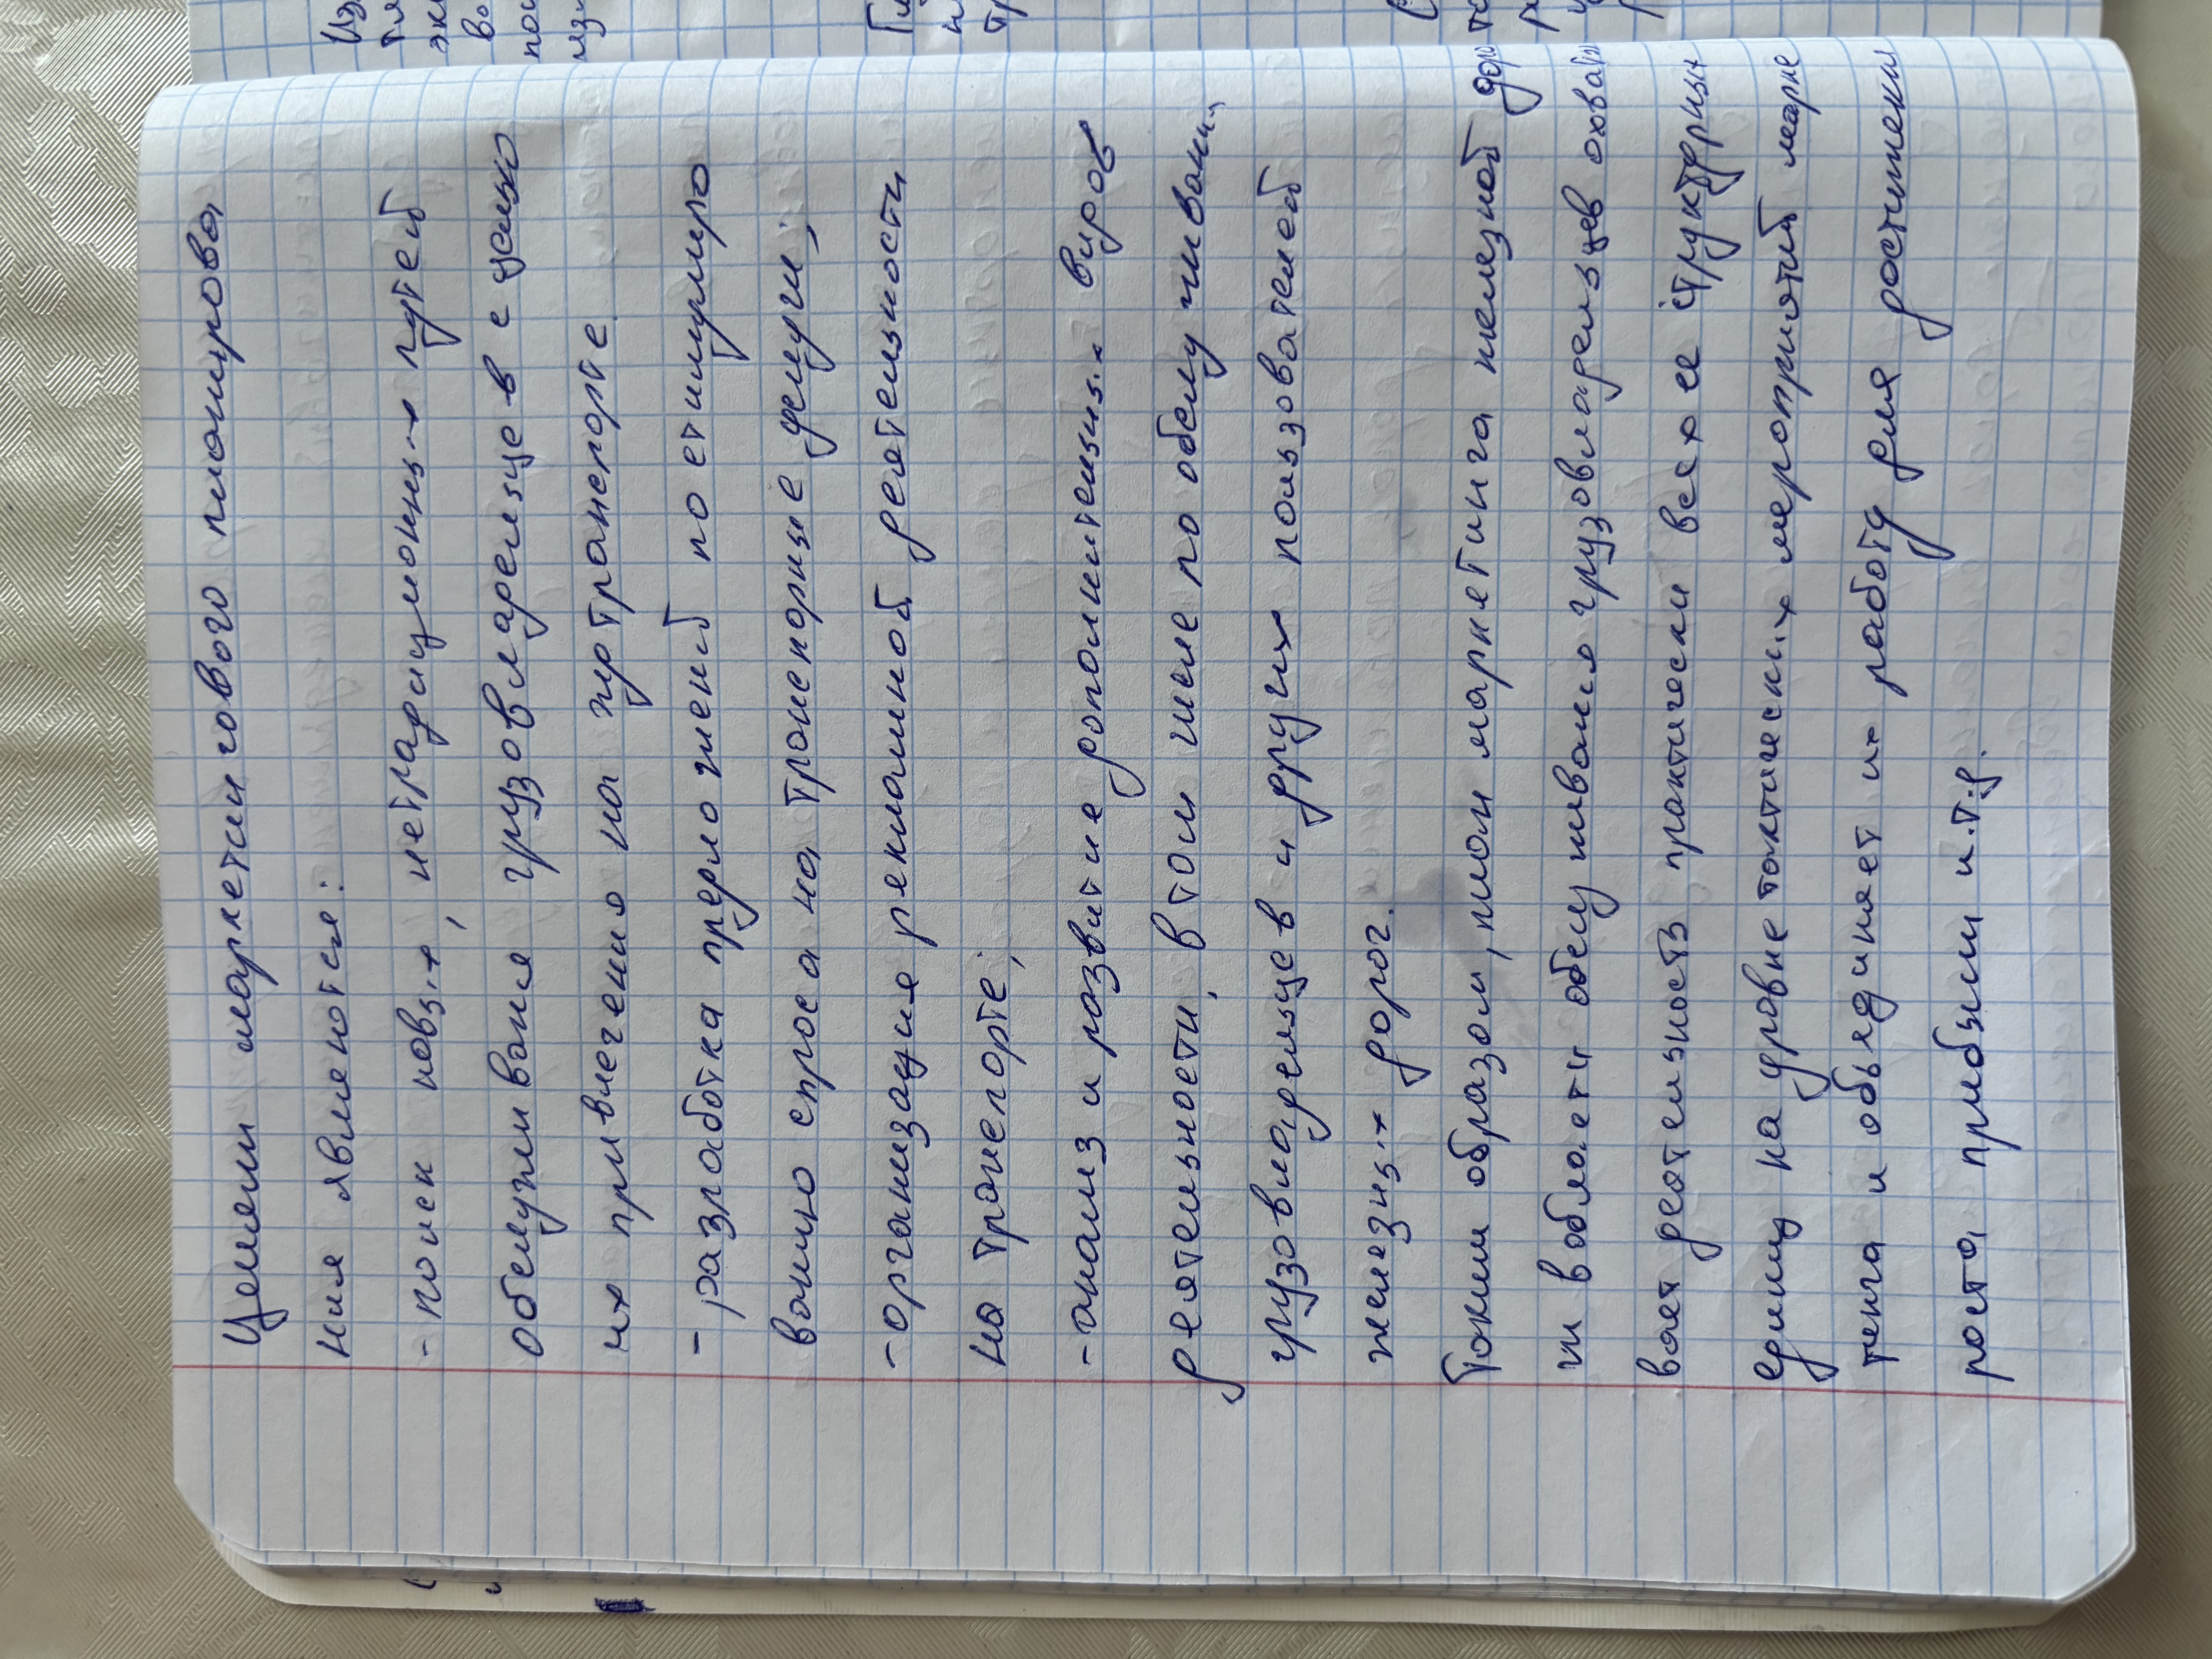 Целями маркетингового планирова
ния являются:
- поиск новых, нетрадиционных путей
обслуживания грузовладельцев с целью
их привлечения на ж/д транспорте.
- разработка предложений по стимулиро
ванию спроса на транспорные услуги;
- организация рекламной деятельности
на транспорте;
- анализ и развитие дополнительных видов
деятельности, в том числе по обслуживани..
грузовладельцев и других пользователей
железных дорог.
Таким образом, план маркетинга железной доро
ги в области обслуживания грузовладельцев охва
вает деятельность практически всех ее структурных
единиц на уровне тактических мероприятий марке
тинга и объединяет их работу для достижения
роста прибыли и.т.д.